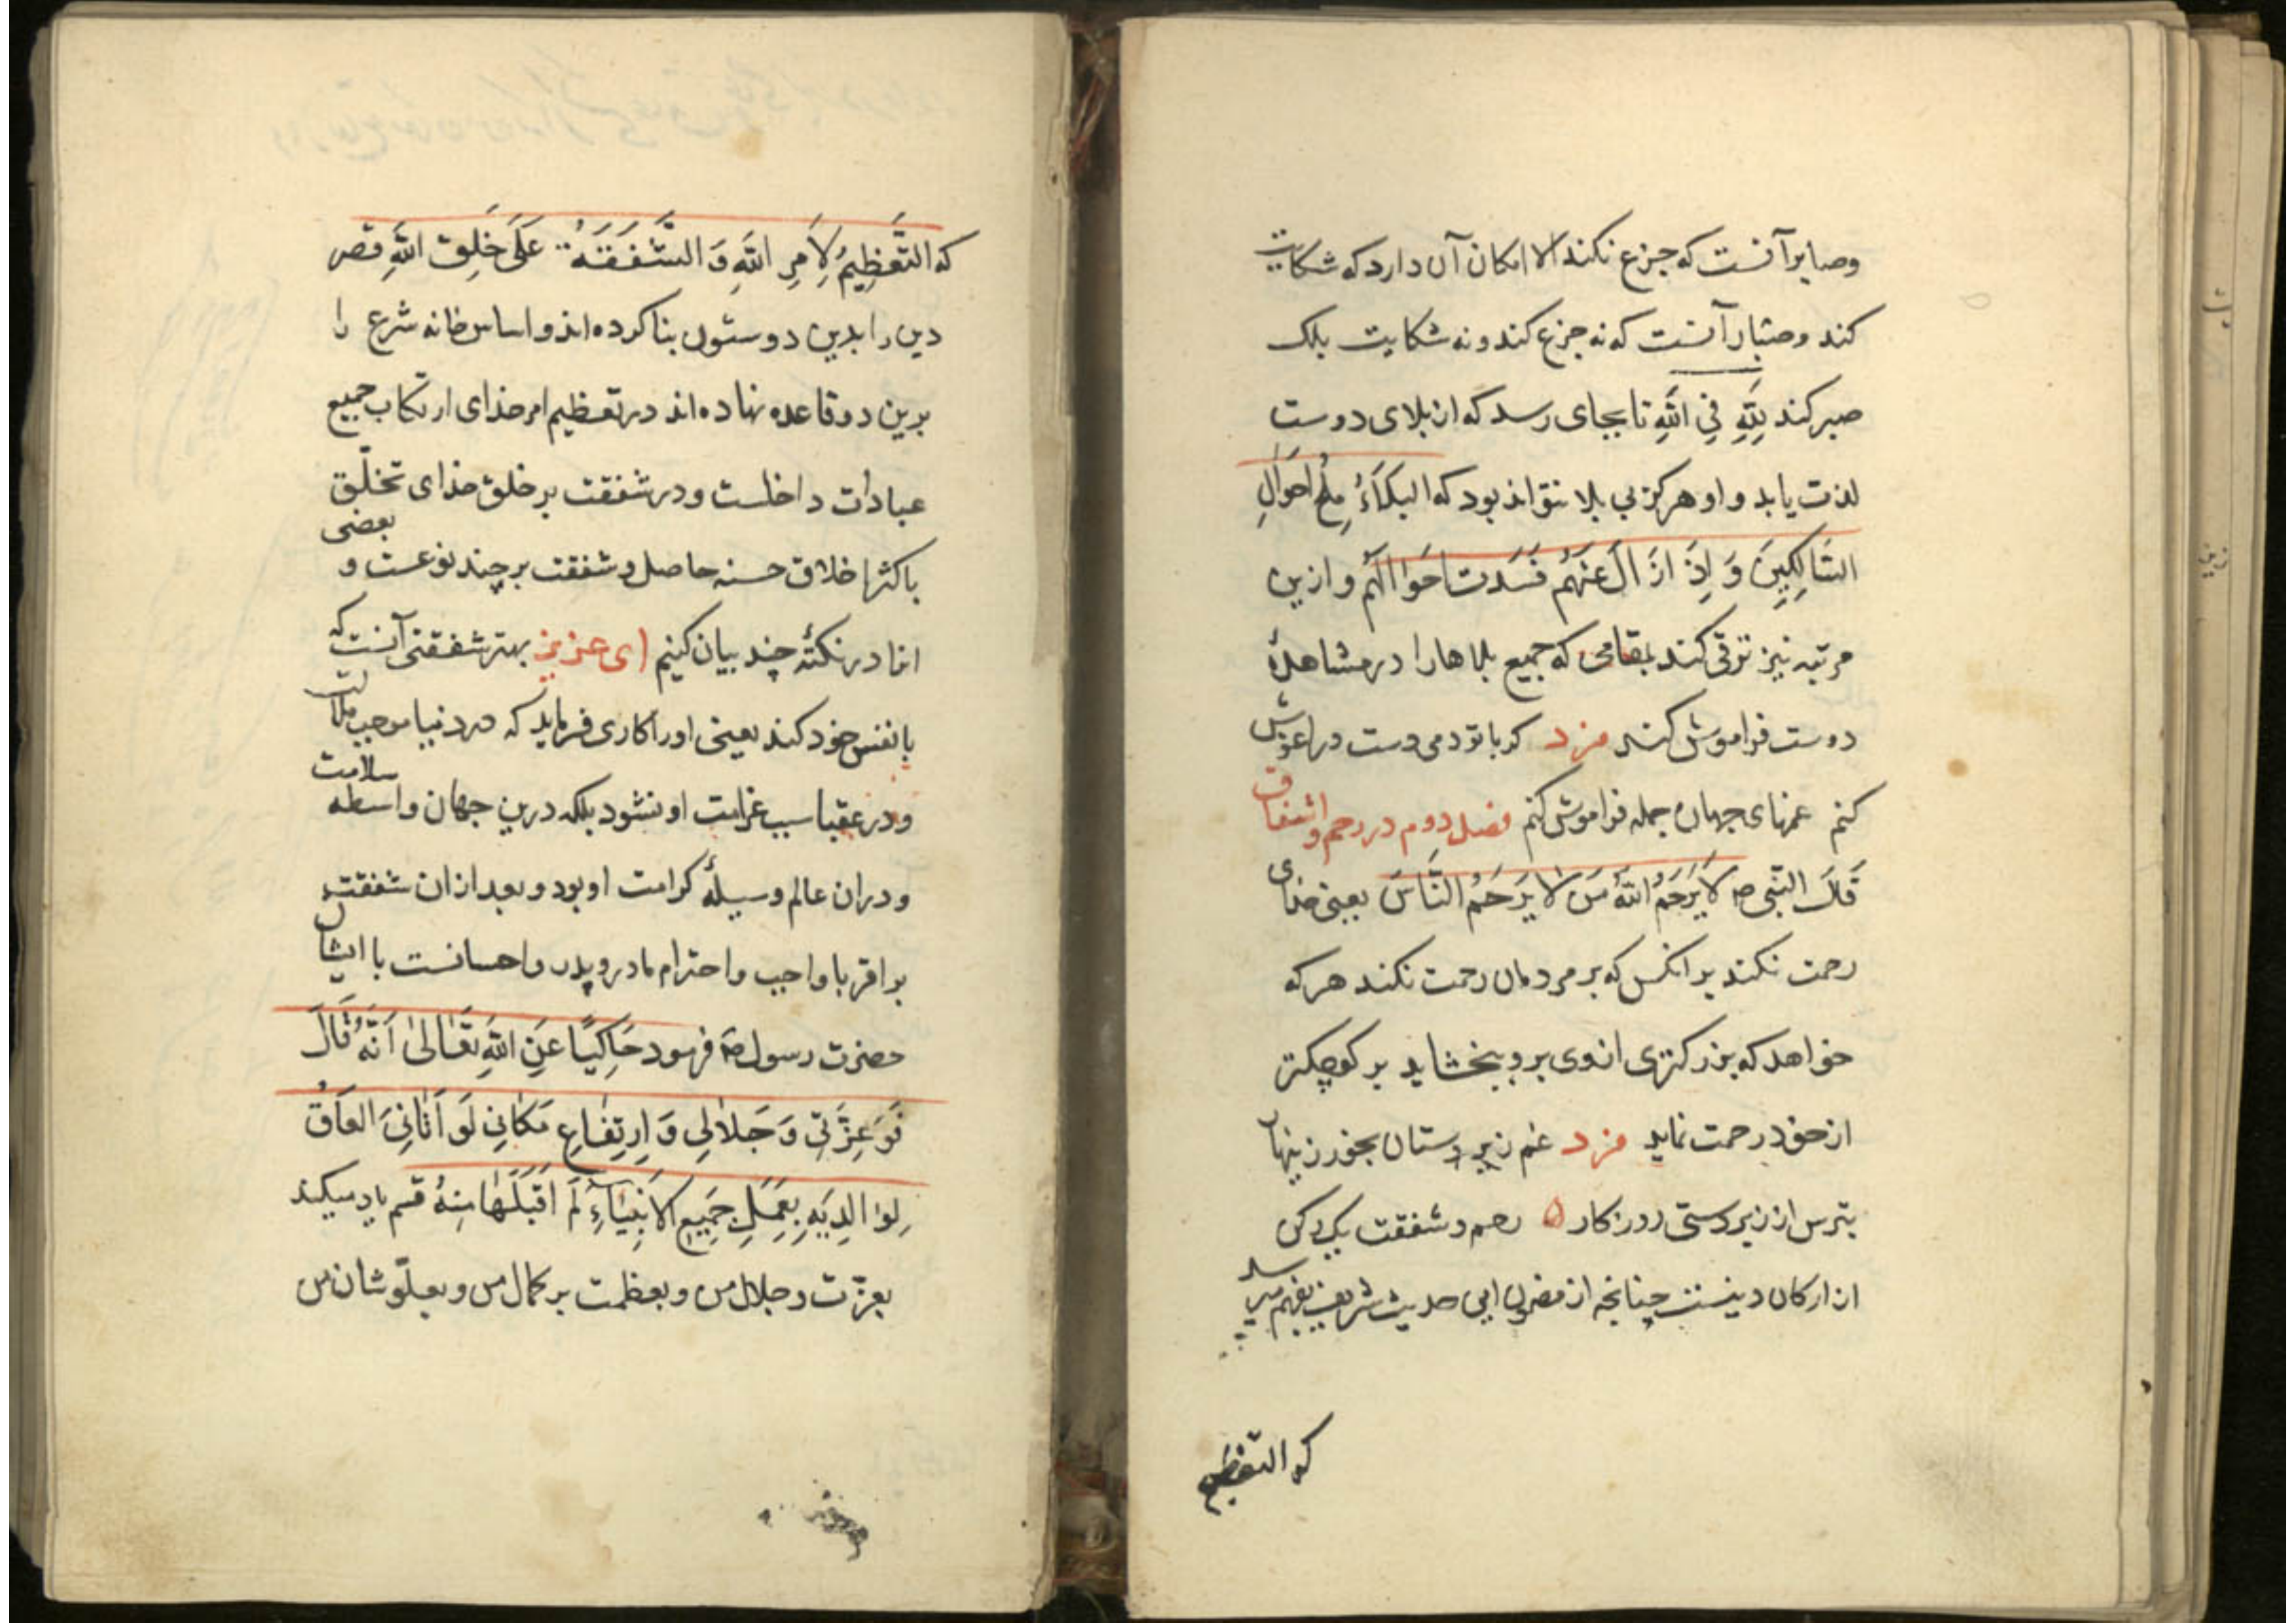 وصابر آنست که جزع نکند الا امکان آن دارد که شکایت
کند و صبّار آنست که نه جزع کند و نه شکایت بلک
صبر کند بِلّهِ فِی اللّهِ تا بجای رسد که از بلای دوست
لذت یابد و او هرکز بی بلا نتواند بود که البَلَاءُ مِلحُ اَحوَالِ
السَّالِکِینَ وَ اِذَا زَالَ عَنهُم فَسَدَت اَحوَالُهُم و ازین
مرتبه نیز ترقی کند بمقامی که جمیع بلاها را در مشاهدهٔ
دوست فراموش کند فرد کر با تو دمی دست در اغوش
کنم غمهای جهان جمله فراموش کنم فصل دوم در رحم و اشفاق
قَالَ النَّبی ص لَا یَرحَمُ اللّهُ مَن لَا یَرحَمُ النَّاسَ یعنی خدای
رحمت نکند بر انکس که بر مردمان رحمت نکند هر که
خواهد که بزرکتری از وی برو ببخشاید بر کوچکتر
از خود رحمت نماید فرد غم زیردستان بخور زینهار
بترس از زبردستی روزکار ۵ رحم و شفقت یک رکن
از ارکان دینست چنانچه از مضمون این حدیث شریف بفهم میرسد
که التعظیم
که التَّعظِیمُ لِاَمرِ اللّهِ وَ الشَّفَقَهُ عَلَی خَلقِ اللّهِ قصر
دین را بدین دو ستون بنا کرده اند و اساس خانه شرع را
برین دو قاعده نهاده اند در تعظیم امر خدای ارتکاب جمیع
عبادات داخلست و در شفقت بر خلق خدای تخلّق
باکثر اخلاق حسنه حاصل و شفقت بر چند نوعست و بعضی
انا در نکتهٔ چند بیان کنیم ای عزیز بهتر شفقتی آنست که
با نفس خود کند یعنی او را کاری فرماید که در دنیا موجب ملالت
و در عقبا سبب غرامت او نشود بلکه درین جهان واسطه سلامت
و دران عالم وسیلهٔ کرامت او بود و بعد ازان شفقت
بر اقربا واجب و احترام مادر و پدر و احسانست با ایشان
حضرت رسول ص فرمود حَاکِیًا عَنِ اللّهِ تَعَالیٰ اَنَّهُ قَالَ
فَوَعِزَّتِی وَ جَلَالِی وَ اِرتِفَاعِ مَکَانِی لَو اَتَانِیَ العَاقُ
لِوَالِدَیهِ بِعَمَلِ جَمِیعِ الاَنبِیَآءِ لَم اَقبَلهَا مِنهُ قسم یاد میکند
بعزّت و جلال من و بعظمت بر کمال من و بعلّو شان من